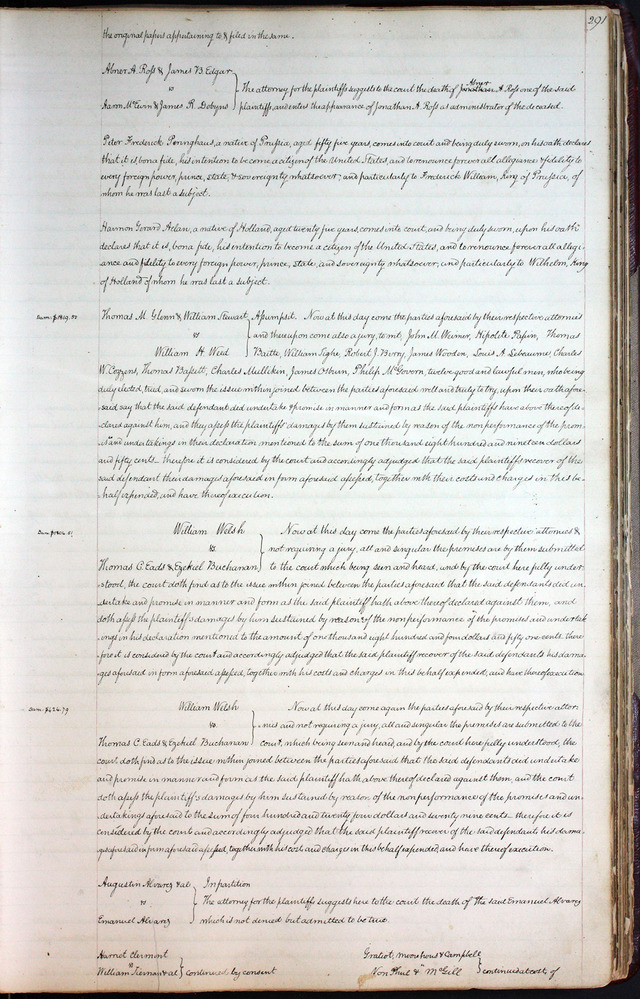 291
the original papers appertaining to & filed in the same.
Abner A. Ross & James B. Edgar
vs
Aaron McEwin & James R. Dobyns
The attorney for the plaintiffs suggests to the court the death of Abner A. Ross one of the said
plaintiffs, and enters the appearance of Jonathan A. Ross as administrator of the deceased.
Peter Frederick Ponninghaus, a native of Prussia, aged fifty five years, comes into court and being duly sworn, on his oath declares
that it is, bona fide, his intention to become a citizen of the United States, and to renounce forever all allegiance & fidelity to
every foreign power, prince, state, & sovereignty whatsoever; and particularly to Frederick William, King of Prussia, of
whom he was last a subject.
Harmon Gerard Arlan, a native of Holland, aged twenty five years, comes into court, and being duly sworn, upon his oath
declares that it is, bona fide, his intention to become a citizen of the United States, and to renounce forever all allegi-
ance and fidelity to every foreign power, prince, state, and sovereignty whatsoever; and particularly to Wilhelm, King
of Holland of whom he was last a subject.
Dam. $1819.50
Thomas M. Glenn & William Stewart
vs
William H. Weed
Assumpsit. Now at this day come the parties aforesaid by their respective attornies
and thereupon come also a jury, to wit, John M. Weimer, Hipolite Papin, Thomas
Battle, William Tighe, Robert J. Berry, James Wooden, Louis A. Lebeaume, Charles
W. Cozzens, Thomas Bassett, Charles Mullikin, James Osburn, Philip McGovern, twelve good and lawful men, who being
duly elected, tried, and sworn the issue within joined between the parties aforesaid well and truly to try, upon their oath afore-
said say that the said defendant did undertake & promise in manner and form as the said plaintiffs have above thereof de-
clared against him, and they assess the plaintiffs' damages by them sustained by reason of the nonperformance of the prom-
ises and undertakings in their declaration mentioned to the sum of one thousand eight hundred and nineteen dollars
and fifty cents_ therefore it is considered by the court and accordingly adjudged that the said plaintiffs recover of the
said defendant their damages aforesaid in form aforesaid assessed, together with their costs and charges in this be-
half expended, and have thereof execution.
Dam $1804.51
William Welsh
vs.
Thomas C. Eads & Ezekiel Buchanan
Now at this day come the parties aforesaid by their respective attornies &
not requiring a jury, all and singular the premises are by them submitted
to the court which being seen and heard, and by the court here fully under-
stood, the court doth find as to the issue within joined between the parties aforesaid that the said defendants did un-
dertake and promise in manner and form as the said plaintiff hath above thereof declared against them, and
doth assess the plaintiff's damages by him sustained by reason of the nonperformance of the promises and undertak-
ings in his declaration mentioned to the amount of one thousand eight hundred and four dollars and fifty one cents. there-
fore it is considered by the court and accordingly adjudged that the said plaintiff recover of the said defendants his dama-
ges aforesaid in form aforesaid assessed, together with his costs and charges in this behalf expended, and have thereof execution.
Dam. $424.79
William Welsh
vs.
Thomas C. Eads & Ezekiel Buchanan
Now at this day come again the parties aforesaid by their respective attor-
nies and not requiring a jury, all and singular the premises are submitted to the
court, which being seen and heard, and by the court here fully understood, the
court doth find as to the issue within joined between the parties aforesaid that the said defendants did undertake
and promise in manner and form as the said plaintiff hath above thereof declared against them, and the court
doth assess the plaintiff's damages by him sustained by reason, of the nonperformance of the promises and un-
dertakings aforesaid to the sum of four hundred and twenty four dollars and seventy nine cents_ therefore it is
considered by the court and accordingly adjudged that the said plaintiff recover of the said defendants his dama-
ges aforesaid in form aforesaid assessed, together with his cost and charges in this behalf expended, and have thereof execution.
Augustin Alvarez & al
vs
Emanuel Alvarez
In partition
The attorney for the plaintiffs suggests here to the court the death of the said Emanuel Alvarez
which is not denied but admitted to be true.
Harriet Clermont
vs
William Tiernan & al
continued by consent
Gratiot, Morehous & Campbell
vs
Von Phul & McGill
continued at cost of